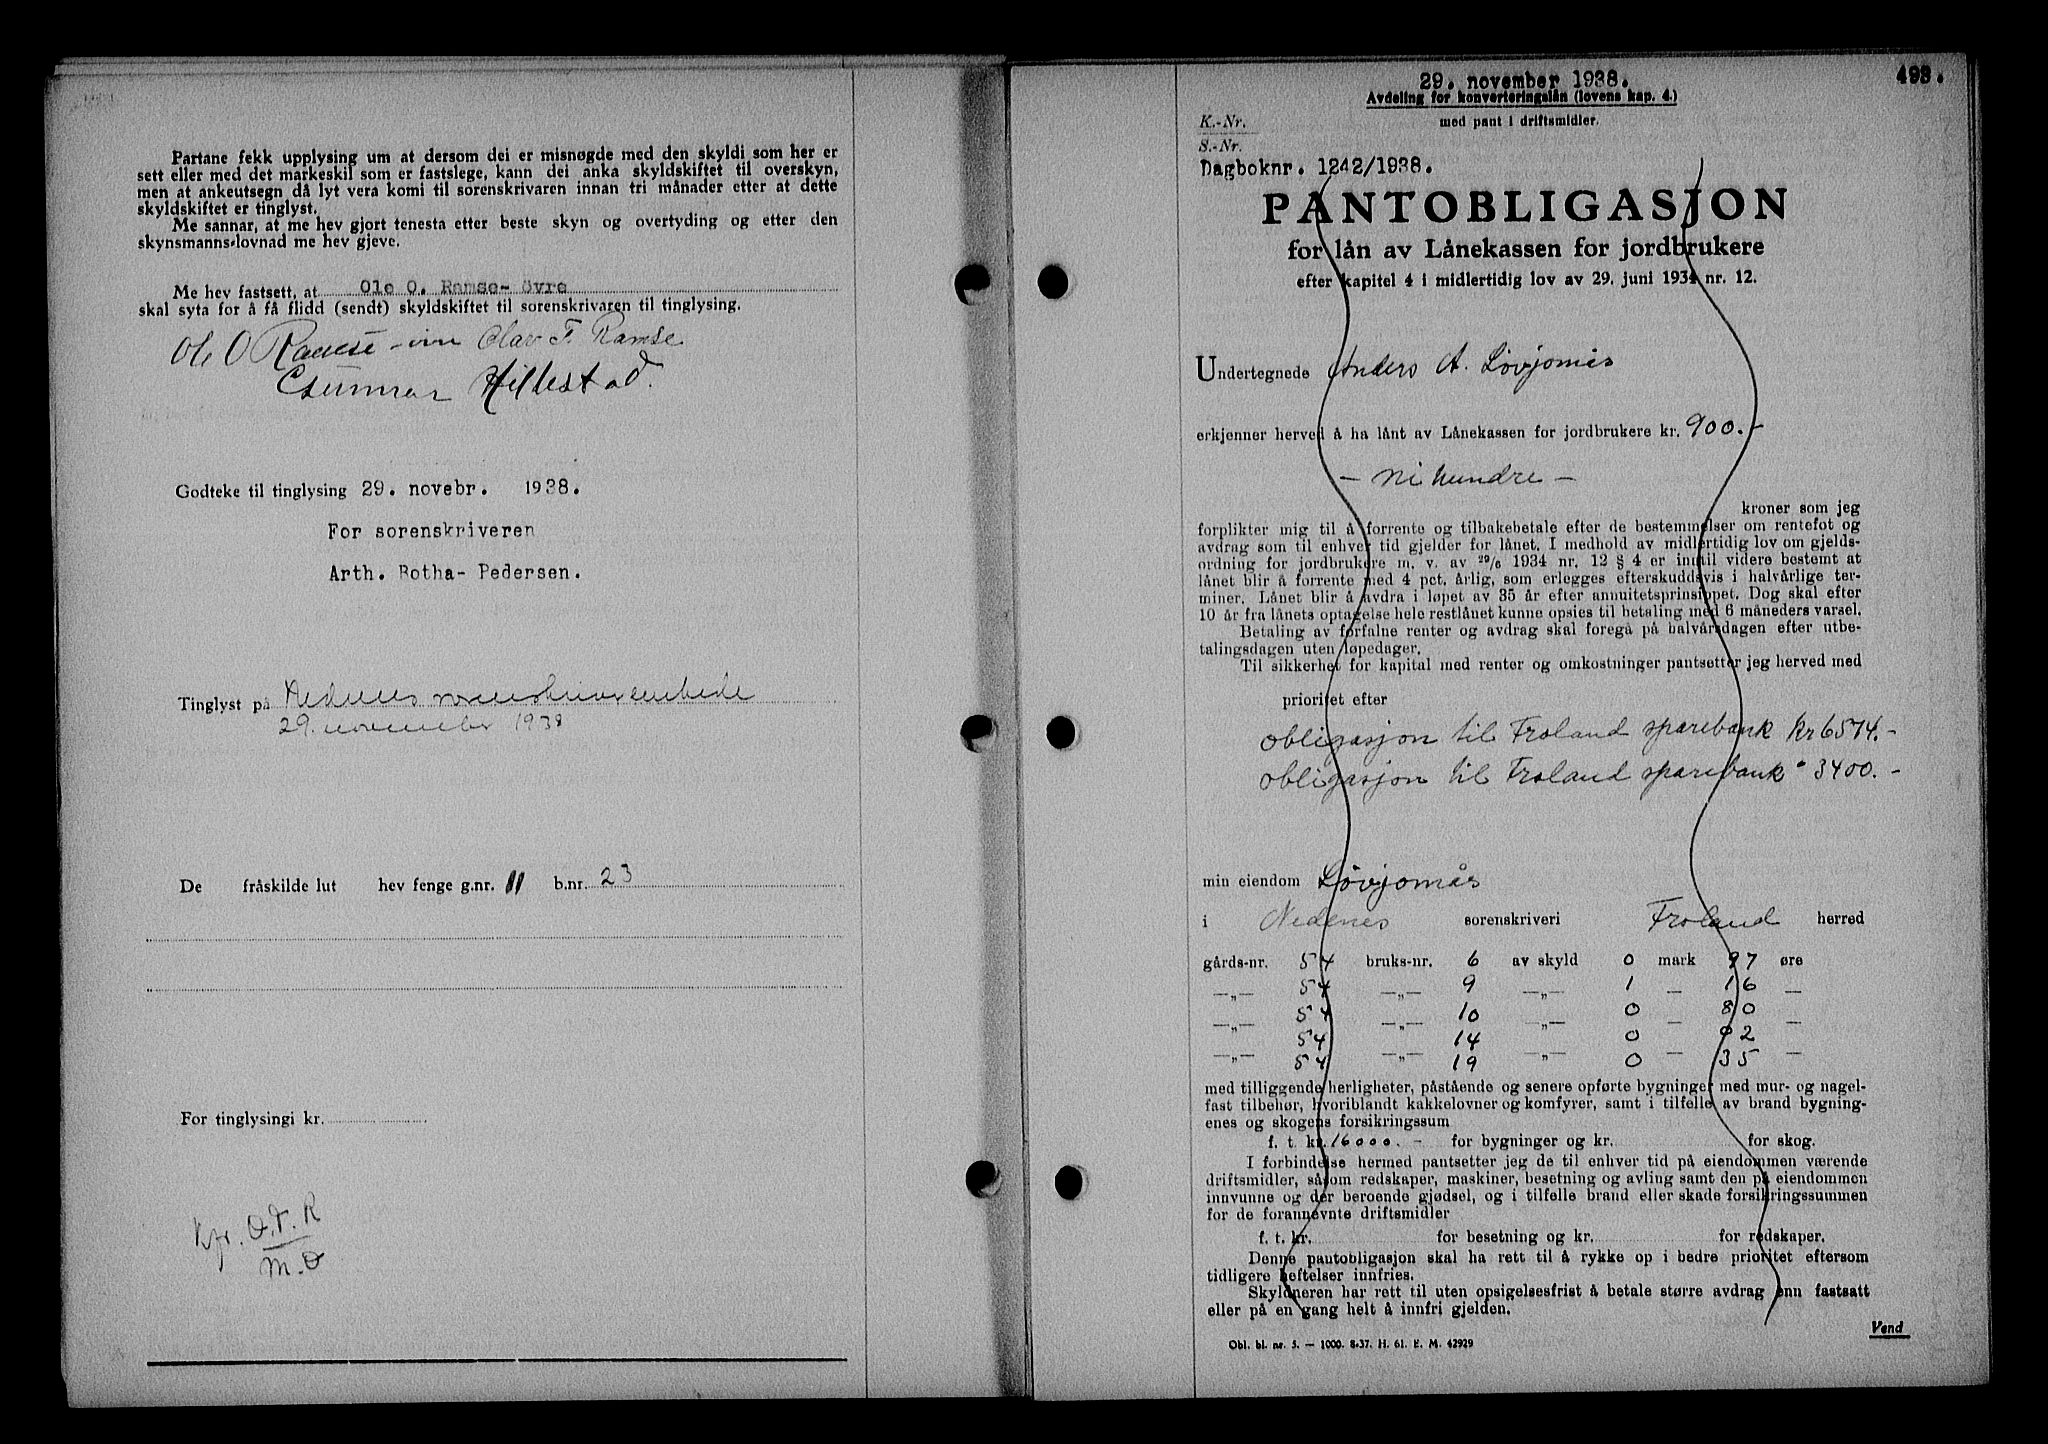 Partane fekk upplysing um at dersom dei er misnøgde med den skyldi som her er
sett eller med det markeskil som er fastslege, kann dei anka skyldskiftet til overskyn,
men at ankeutsegn då lyt vera komi til sorenskrivaren innan tri månader etter at dette
skyldskiftet er tinglyst.
Me sannar, at me hev gjort tenesta etter beste skyn og overtyding og etter den
skynsmanns-lovnad me hev gjeve.
Me hev fastsett, at Ole O. Ramse- övre
skal syta for å få flidd (sendt) skyldskiftet til sorenskrivaren til tinglysing.
Ole O Ramse - Olav F. Ramse
Gunnar Hillestad.
Godteke til tinglysing 29. novebr. 1938.
For sorenskriveren
Arth. Botha- Pedersen.
Tinglyst på Nedenes sorenskriverembede
29. november 1938
De fråskilde lut hev fenge g.nr. 11 b.nr. 23
For tinglysingi kr.
Kfr. O.F.R
M.O
29. november 1938.
493.
Avdeling for konverteringslån (lovens kap. 4.)
med pant i driftsmidler.
K.-Nr.
S.-Nr.
Dagboknr. 1242/1938.
PANTOBLIGASJON
for lån av Lånekassen for jordbrukere
efter kapitel 4 i midlertidig lov av 29. juni 1934 nr. 12.
Undertegnede Anders A. Løvjomås
erkjenner herved å ha lånt av Lånekassen for jordbrukere kr. 900.-
- ni hundre -
kroner som jeg
forplikter mig til å forrente og tilbakebetale efter de bestemmelser om rentefot og
avdrag som til enhver tid gjelder for lånet. I medhold av midlertidig lov om gjelds-
ordning for jordbrukere m. v. av 29/6 1934 nr. 12 § 4 er inntil videre bestemt at
lånet blir å forrente med 4 pct. årlig, som erlegges efterskuddsvis i halvårlige ter-
miner. Lånet blir å avdra i løpet av 35 år efter annuitetsprinsippet. Dog skal efter
10 år fra lånets optagelse hele restlånet kunne opsies til betaling med 6 måneders varsel.
Betaling av forfalne renter og avdrag skal foregå på halvårsdagen efter utbe-
talingsdagen uten løpedager.
Til sikkerhet for kapital med renter og omkostninger pantsetter jeg herved med
prioritet efter
obligasjon til Froland sparebank kr 6574.-
obligasjon til Froland sparebank " 3400.-
min eiendom Løvjomås
i Nedenes sorenskriveri Froland herred
gårds-nr. 54 bruks-nr. 6 av skyld 0 mark 97 øre
—„— 54 —„— 9 —„— 1 — 16 —
—„— 54 —„— 10 —„— 0 — 80 —
—„— 54 —„— 14 —„— 0 — 02 —
—„— 54 —„— 19 —„— 0 — 35 —
med tilliggende herligheter, påstående og senere opførte bygninger med mur- og nagel-
fast tilbehør, hvoriblandt kakkelovner og komfyrer, samt i tilfelle av brand bygning-
enes og skogens forsikringssum
f. t. kr. 16000.- for bygninger og kr. for skog.
I forbindelse hermed pantsetter jeg de til enhver tid på eiendommen værende
driftsmidler, såsom redskaper, maskiner, besetning og avling samt den på eiendommen
innvunne og der beroende gjødsel, og i tilfelle brand eller skade forsikringssummen
for de forannevnte driftsmidler
f. t. kr. for besetning og kr. for redskaper.
Denne pantobligasjon skal ha rett til å rykke op i bedre prioritet eftersom
tidligere heftelser innfries.
Skyldneren har rett til uten opsigelsesfrist å betale større avdrag enn fastsatt
eller på en gang helt å innfri gjelden.
Vend
Obl. bl. nr. 5. — 1000. 8-37. H. 61. E. M. 42929